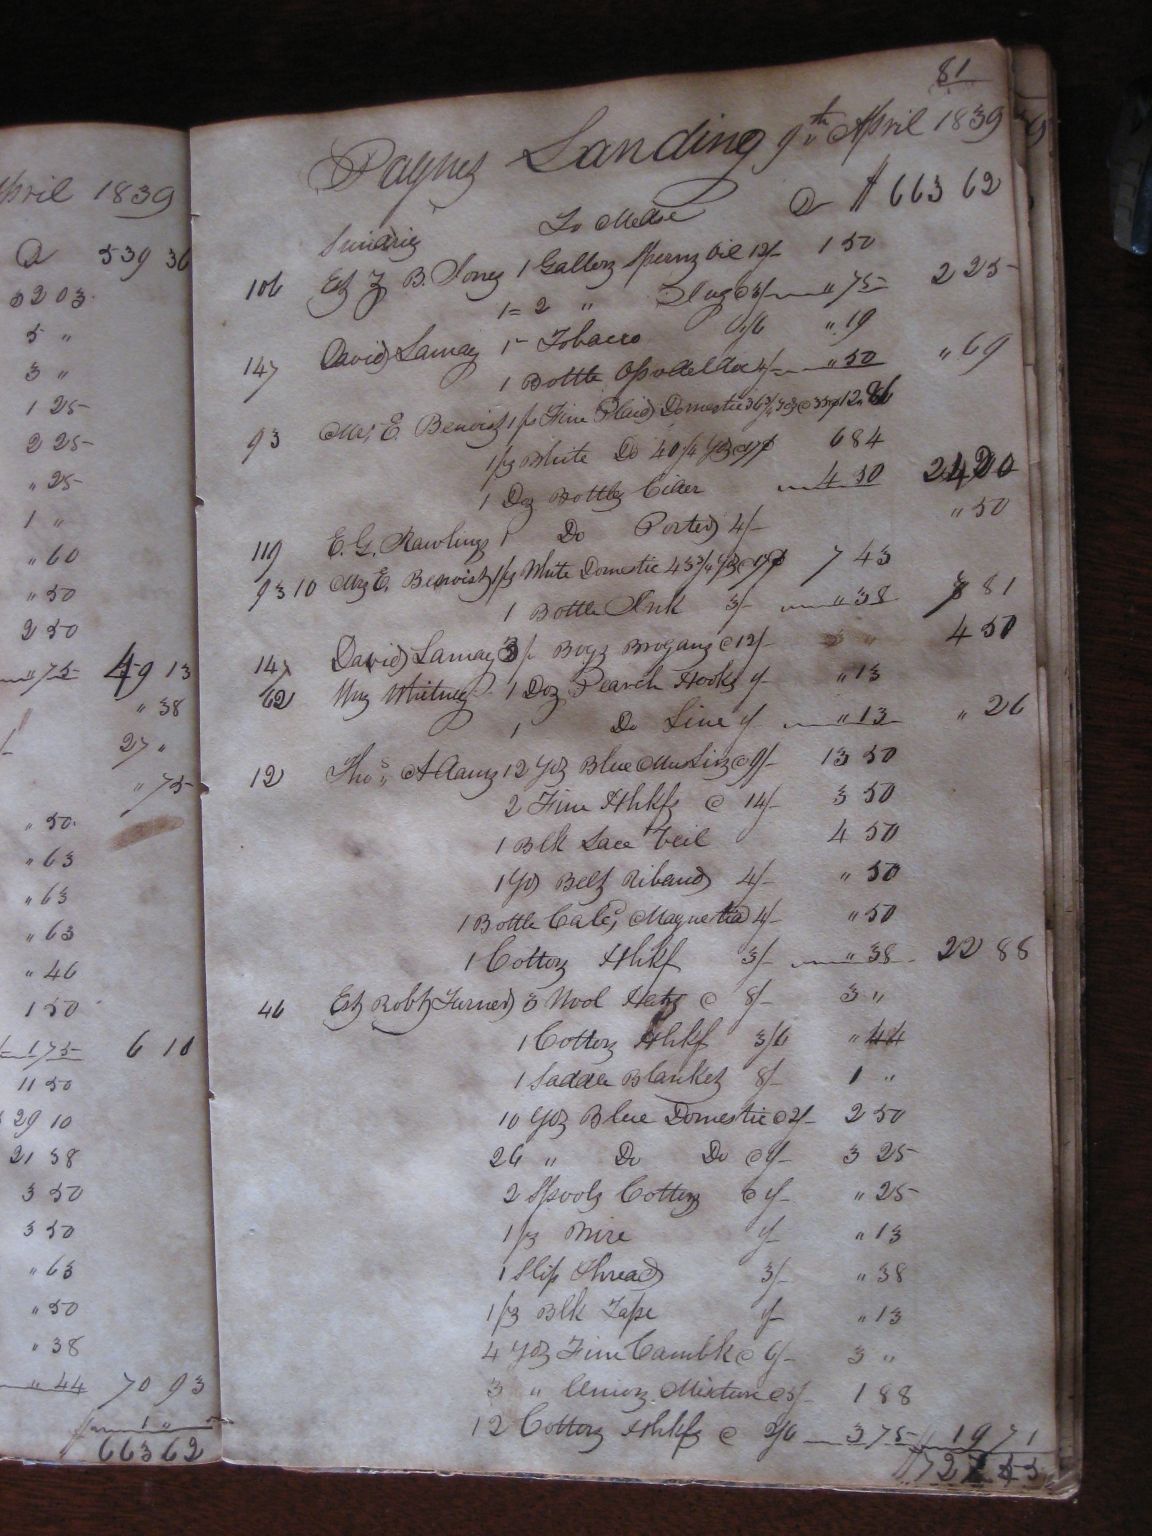 April 1839
539 36
5 203
5 "
3 "
1 25
2 25
" 25
1 "
" 60
" 50
2 50
" 75 49 13
" 38
27 "
" 75
" 50
" 63
" 63
" 63
" 46
1 50
1 75 6 10
11 50
29 10
21 38
3 50
3 50
" 63
" 50
" 38
" 44 70 93
1 "
663 62
81
Paynes Landing 9th April 1839
Sundries To Mdse $ 663 62
106 Est B. 1 Gallon Sperm Oil 12/- 1 50
1 = 2 " @ 3/- " 75 2 25
147 David Lamay 1 - Tobacco 1/6 " 19
1 Bottle Opodeldoc 4/- " 50 " 69
93 Mrs E. Benoist 1 ps Fine Plaid Domestic 36 3/4 yds @ 35¢ 12 86
1 ps White Do 40 1/4 yds @ 17¢ 6 84
1 Doz Bottles Cider 4 50 24 20
119 E. G. Rawlings 1 Do Porter 4/- " 50
93 10 Mrs E. Benoist 1 ps White Domestic 43 3/4 yds @ 17¢ 7 43
1 Bottle Ink 3/- " 38 7 81
147 David Lamay 3 pr Boys Brogans @ 12/- 4 50
62 Wm Whitney 1 Doz Pearch Hooks 1/- " 13
1 Do Line 1/- " 13 " 26
12 Thos. Adams 12 Yds Blue Muslin @ 9/- 13 50
2 Fine Hhkfs @ 14/- 3 50
1 Blk Lace Veil 4 50
1 Yd Belt Riband 4/- " 50
1 Bottle Calc, Magnetia 4/- " 50
1 Cotton Hhkf 3/- " 38 22 88
46 Est Robt Turner 3 Wool Hats @ 8/- 3 "
1 Cotton Hhkf 3/6 " 44
1 Saddle Blanket 8/- 1 "
10 Yds Blue Domestic @ 2/- 2 50
26 " Do Do @ 1/- 3 25
2 Spools Cotton @ 1/- " 25
1 ps Wire 1/- " 13
1 Slip Thread 3/- " 38
1 ps Blk Tape 1/- " 13
4 Yds Fine Cambk @ 6/- 3 "
3 " Union Mixture @ 5/- 1 88
12 Cotton Hhkfs @ 2/6 3 75 19 71